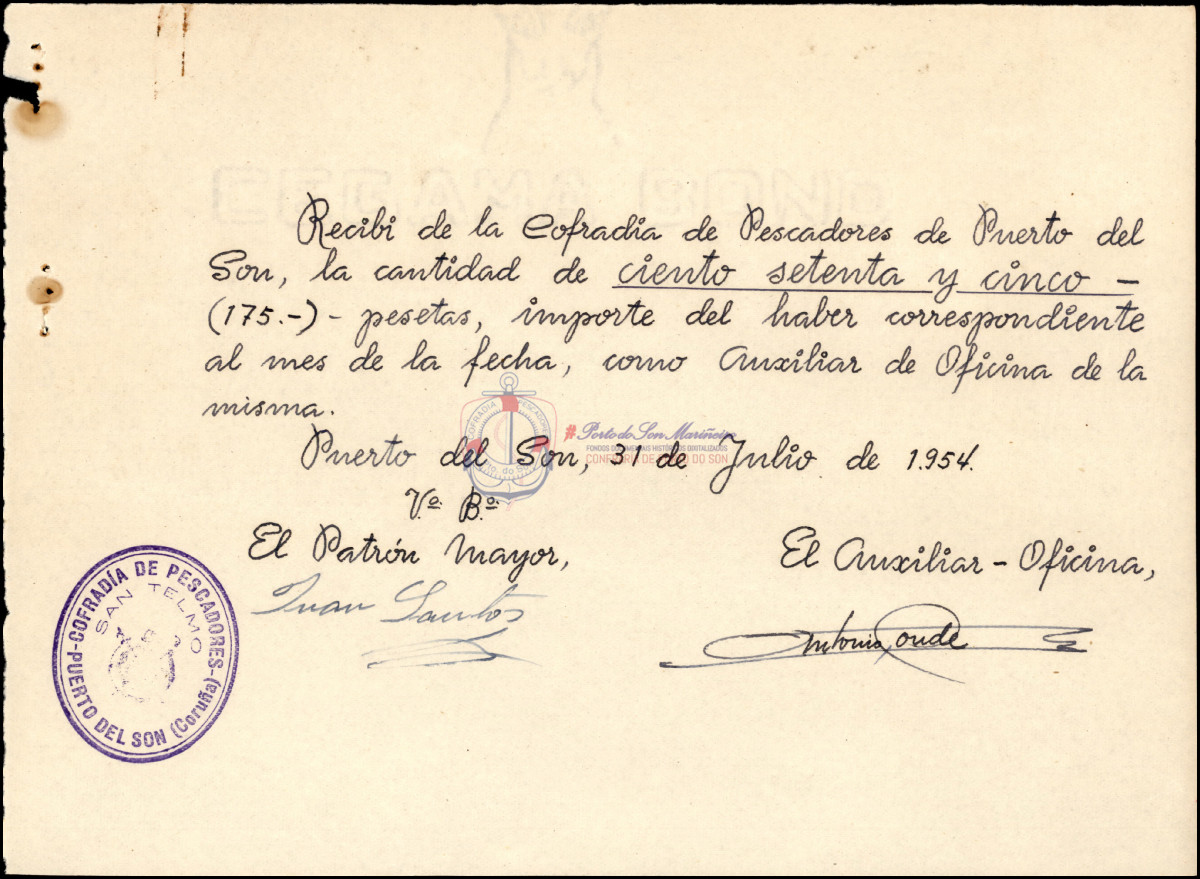 Recibi de la Cofradia de Pescadores de Puerto del
Son, la cantidad de ciento setenta y cinco -
(175.-) - pesetas, importe del haber correspondiente
al mes de la fecha, como Auxiliar de Oficina de la
misma.
Puerto del Son, 31 de Julio de 1.954.
Vº. Bº.
El Patrón Mayor,
El Auxiliar - Oficina,
Juan Santos
Antonio Conde
COFRADÍA DE PESCADORES
SAN TELMO
PUERTO DEL SON (Coruña)
COFRADIA PESCADORES
# Porto do Son Mariñeiro
FONDOS DOCUMENTAIS HISTÓRICOS DIXITALIZADOS
CONFRARÍA DE PORTO DO SON